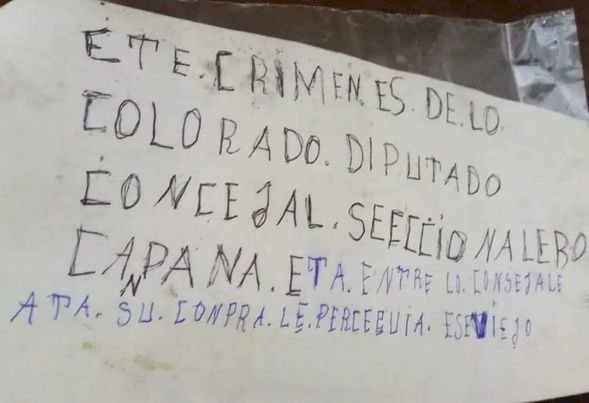 ETE. CRIMEN. ES. DE. LO.
COLORADO. DIPUTADO
CONCEJAL. SEECCIONALERO
CANPAÑA. ETA. ENTRE LO. CONSEJALE
ATA. SU. CONPRA. LE. PERCEGUIA. ESEVIEJO